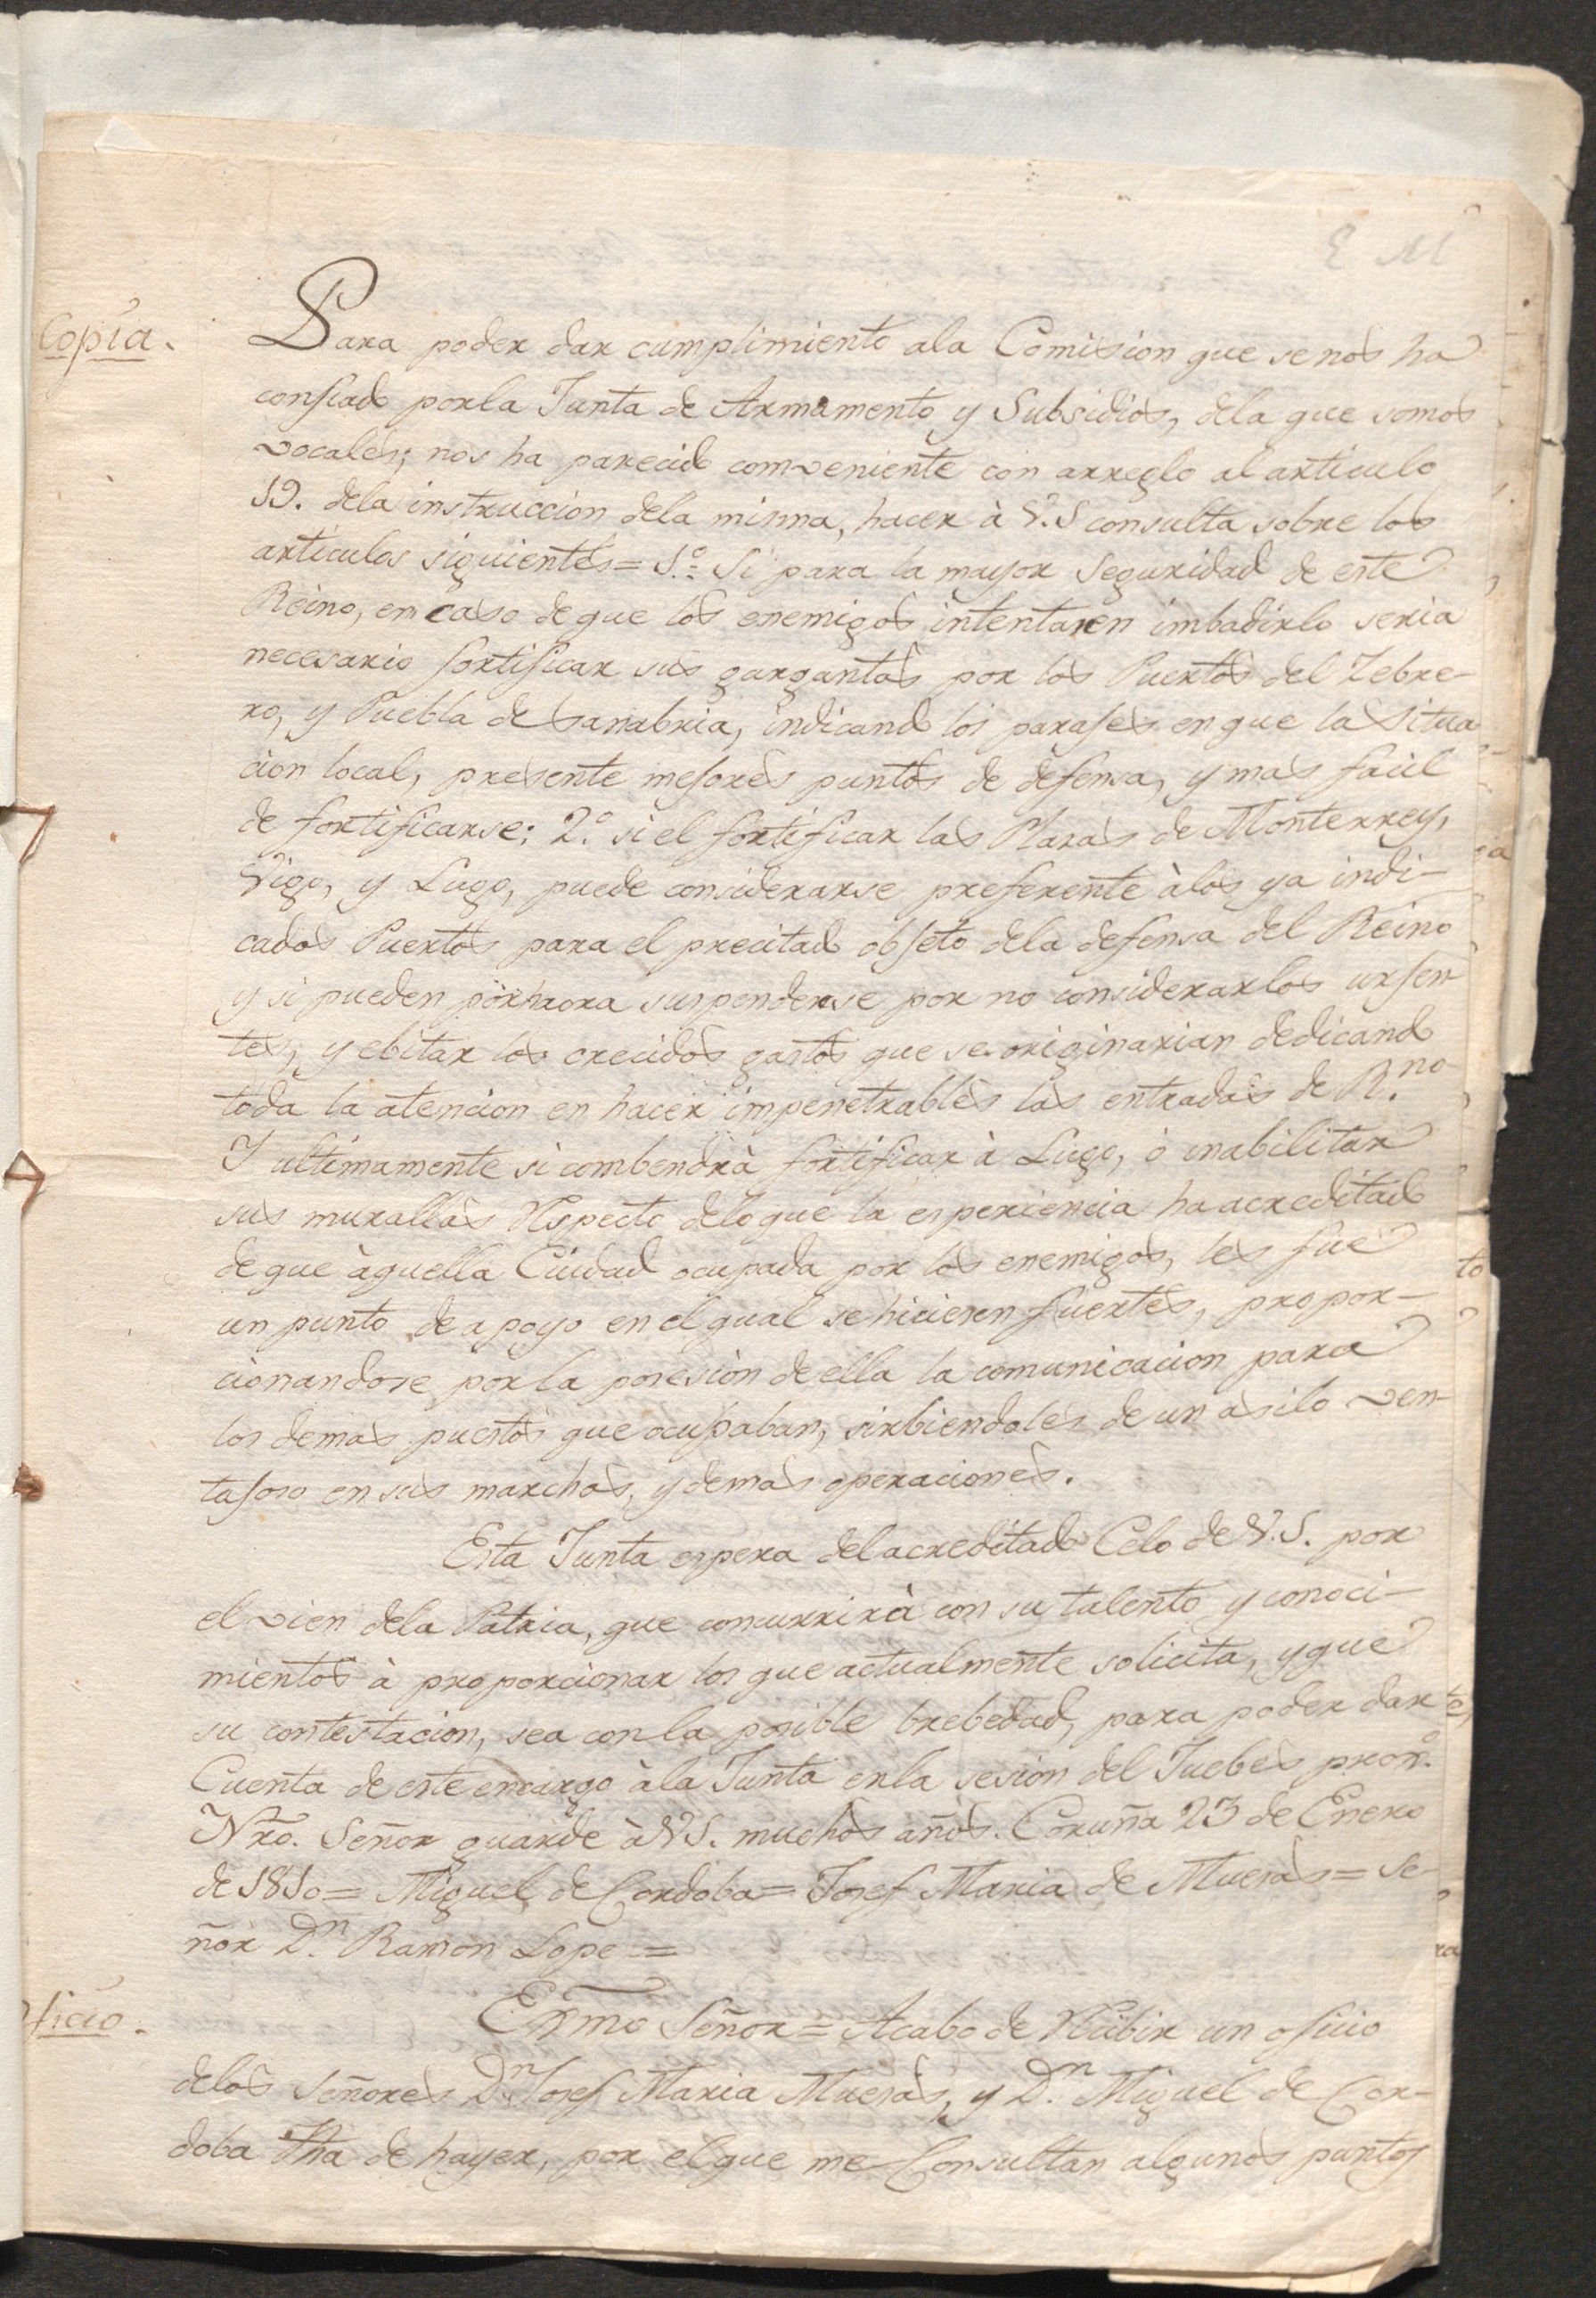 Copia.
Para poder dar cumplimiento ala Comision que se nos ha
confiado porla Junta de Armamento y Subsidios, dela que somos
vocales; nos ha parecido comveniente con arreglo al articulo
19. dela instruccion dela misma, hacer à V.S consulta sobre los
articulos siguientes = 1.º Si para la mayor seguridad de este
Reino, en caso de que los enemigos intentaren imbadirlo seria
necesario fortificar sus gargantas por los Puertos del Zebre-
ro, y Puebla de Sanabria, indicando los parajes en que la situa
cion local, presente mejores puntos de defensa, y mas facil
de fortificarse: 2.º si el fortificar las Plazas de Monterrey,
Vigo, y Lugo, puede considerarse preferente àlos ya indi-
cados Puertos para el precitado objeto dela defensa del Reino
y si pueden por haora suspenderse por no considerarlos urjen
tes, y ebitar los crecidos gastos que se originarian dedicando
toda la atencion en hacer impenetrables las entradas de R.no
Y ultimamente si combendrà fortificar à Lugo, ò inabilitar
sus murallas respecto delo que la esperiencia ha acreditado
de que àquella Ciudad ocupada por los enemigos, les fue
un punto de apoyo en el qual se hicieren fuertes, propor-
cionandose porla posesion de ella la comunicacion para
los demas puestos que ocupaban, sirbiendoles de un asilo ven-
tajoso en sus marchas, y demas operaciones.
Esta Junta espera del acreditado Celo de V.S. por
el vien dela Patria, que concurrirà con su talento y conoci-
mientos à proporcionar los que actualmente solicita, y que
su contestacion, sea con la posible brebedad, para poder dar
Cuenta de este encargo àla Junta enla sesion del Juebes proxº.
Nrõ. Señor guarde à VS. muchos años. Coruña 23 de Enero
de 1810 = Miguel de Cordoba = Josef Maria de Mueras = Se-
ñor Dn. Ramon Lope =
Oficio.
Exmo Señor = Acabo de recibir un oficio
delos Señores Dn. Josef Maria Mueras, y Dn. Miguel de Cor-
doba fha de hayer, por el que me Consultan algunos puntos